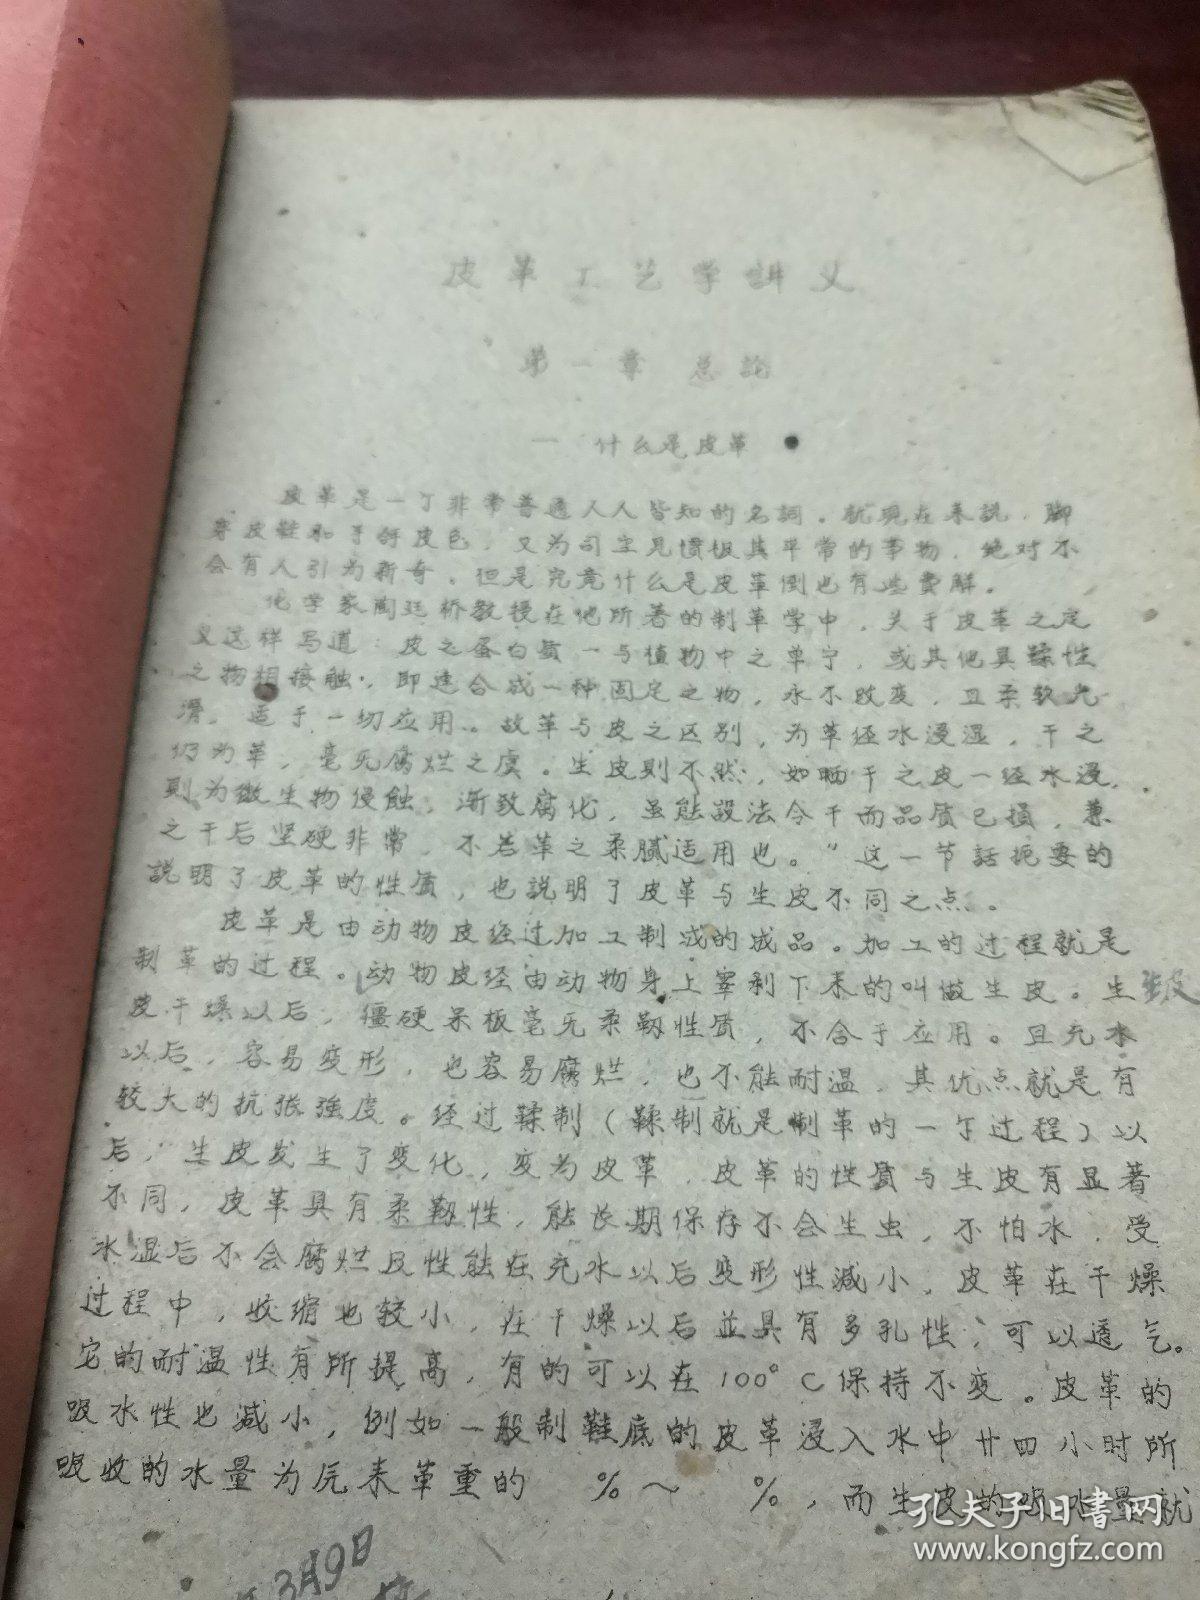 皮革工艺学讲义
第一章 总論
一 什么是皮革
皮革是一丁非常普通人人皆知的名詞。就現在来說,脚
穿皮鞋和手拎皮包,又为司空見慣极其平常的事物,绝对不
会有人引为新奇。但是究竟什么是皮革倒也有些費解。
化学家陶延桥教授在他所著的制革学中,关于皮革之定
义这样写道:皮之蛋白質一与植物中之单宁,或其他具鞣性
之物相接触,即连合成一种固定之物,永不改变,且柔软光
滑,适于一切应用。故革与皮之区别,为革经水浸湿,干之
仍为革,毫无腐烂之虞。生皮则不然,如晒干之皮一经水浸,
则为微生物侵蝕,渐致腐化,虽能設法令干而品质已損,兼
之干后坚硬非常,不若革之柔膩适用也。”这一节話扼要的
説明了皮革的性质,也説明了皮革与生皮不同之点。
皮革是由动物皮经过加工制成的成品。加工的过程就是
制革的过程。动物皮经由动物身上宰剥下来的叫做生皮。生
皮干燥以后,僵硬呆板毫无柔韌性质,不合于应用。且充水
以后,容易变形,也容易腐烂,也不能耐温,其优点就是有
较大的抗张強度。经过鞣制(鞣制就是制革的一丁过程)以
后,生皮发生了变化,变为皮革,皮革的性質与生皮有显著
不同,皮革具有柔韌性,能长期保存不会生虫,不怕水,受
水湿后不会腐烂及性能在充水以后变形性減小,皮革在干燥
过程中,收缩也较小,在干燥以后並具有多孔性,可以透气。
它的耐温性有所提高,有的可以在100°C保持不变。皮革的
吸水性也減小,例如一般制鞋底的皮革浸入水中廿四小时所
吸收的水量为原来革重的 %~ %,而生皮的吸水量就
3月9日
孔夫子旧書网
www.kongfz.com